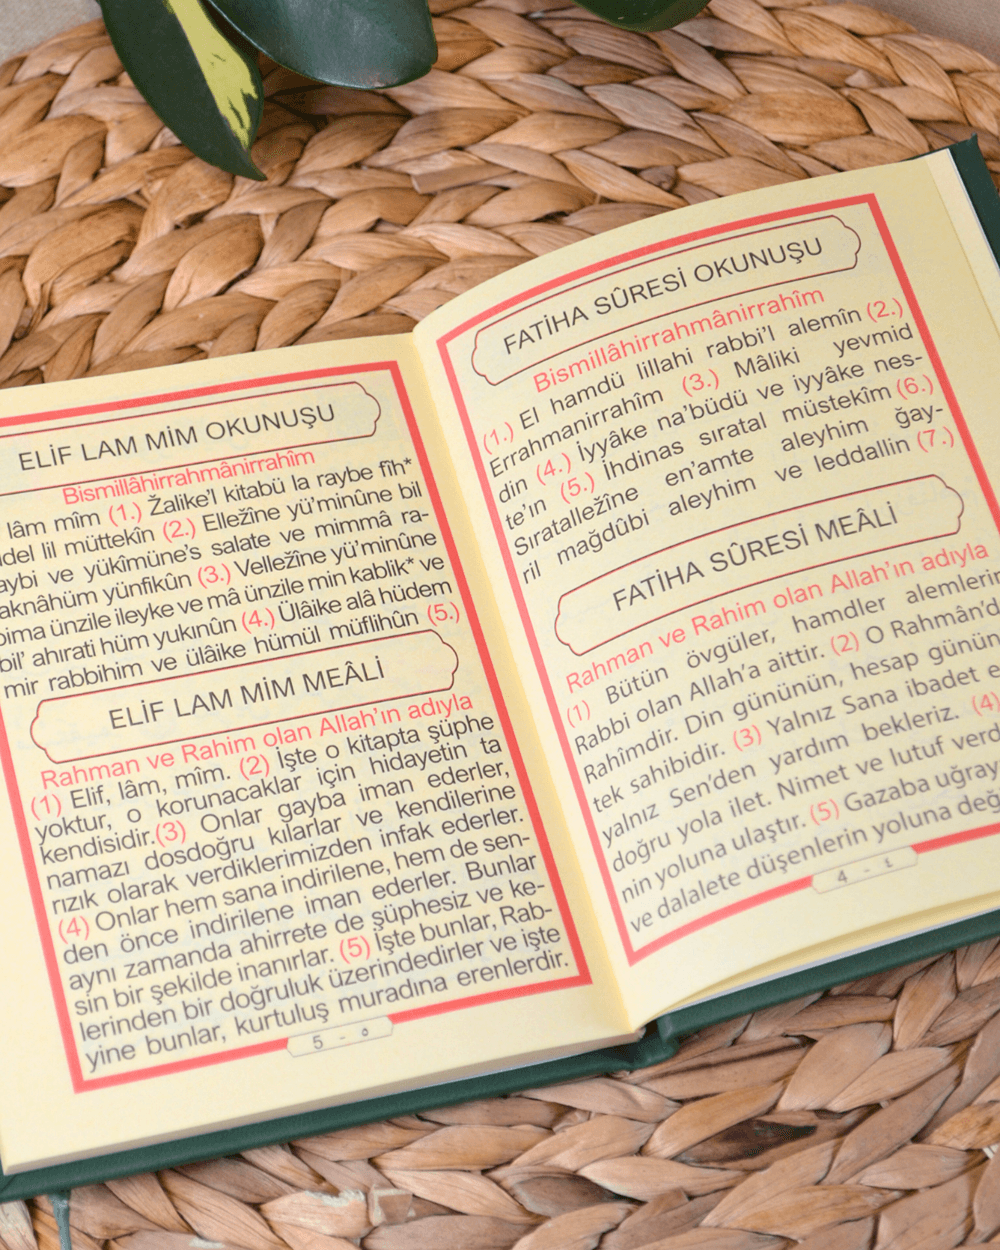 FATİHA SÛRESİ OKUNUŞU
Bismillâhirrahmânirrahîm
(1.) El hamdü lillahi rabbi’l alemîn (2.)
Errahmanirrahîm (3.) Mâliki yevmid
din (4.) İyyâke na’büdü ve iyyâke nes-
te’ın (5.) İhdinas sıratal müstekîm (6.)
Sıratalležîne en’amte aleyhim ğay-
ril mağdûbi aleyhim ve leddallin (7.)
FATİHA SÛRESİ MEÂLİ
Rahman ve Rahim olan Allah’ın adıyla
(1) Bütün övgüler, hamdler alemlerin
Rabbi olan Allah’a aittir. (2) O Rahmân’d
Rahîmdir. Din gününün, hesap günün
tek sahibidir. (3) Yalnız Sana ibadet e
yalnız Sen’den yardım bekleriz. (4)
doğru yola ilet. Nimet ve lutuf verd
nin yoluna ulaştır. (5) Gazaba uğray
ve dalalete düşenlerin yoluna değ
4 - ٤
ELİF LAM MİM OKUNUŞU
Bismillâhirrahmânirrahîm
lâm mîm (1.) Žalike’l kitabü la raybe fîh*
del lil müttekîn (2.) Elležîne yü’minûne bil
aybi ve yükîmüne’s salate ve mimmâ ra-
aknâhüm yünfikûn (3.) Velležîne yü’minûne
bima ünzile ileyke ve mâ ünzile min kablik* ve
bil’ ahırati hüm yukınûn (4.) Ülâike alâ hüdem
mir rabbihim ve ülâike hümül müflihûn (5.)
ELİF LAM MİM MEÂLİ
Rahman ve Rahim olan Allah’ın adıyla
(1) Elif, lâm, mîm. (2) İşte o kitapta şüphe
yoktur, o korunacaklar için hidayetin ta
kendisidir.(3) Onlar gayba iman ederler,
namazı dosdoğru kılarlar ve kendilerine
rızık olarak verdiklerimizden infak ederler.
(4) Onlar hem sana indirilene, hem de sen-
den önce indirilene iman ederler. Bunlar
aynı zamanda ahirrete de şüphesiz ve ke-
sin bir şekilde inanırlar. (5) İşte bunlar, Rab-
lerinden bir doğruluk üzerindedirler ve işte
yine bunlar, kurtuluş muradına erenlerdir.
5 - ٥